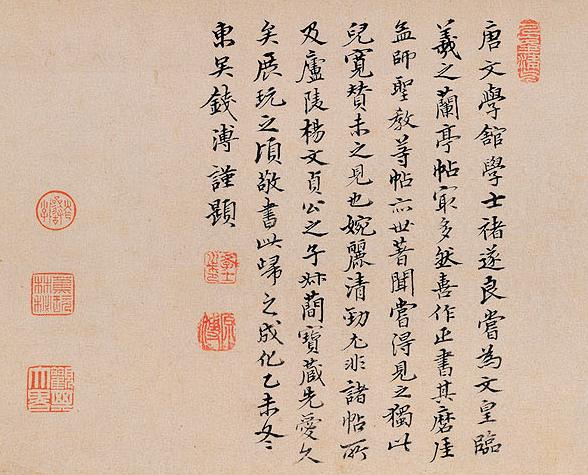 唐文學館學士褚遂良嘗為文皇臨
羲之蘭亭帖寂多然喜作正書其磨崖
孟師聖教等帖亦世著聞嘗得見之獨此
兒寬贊未之見也婉麗清勁尤非諸帖所
及廬陵楊文貞公之子妳蕳寶藏先愛久
矣展玩之頃敬書此歸之成化乙未冬
東吳錢溥謹題